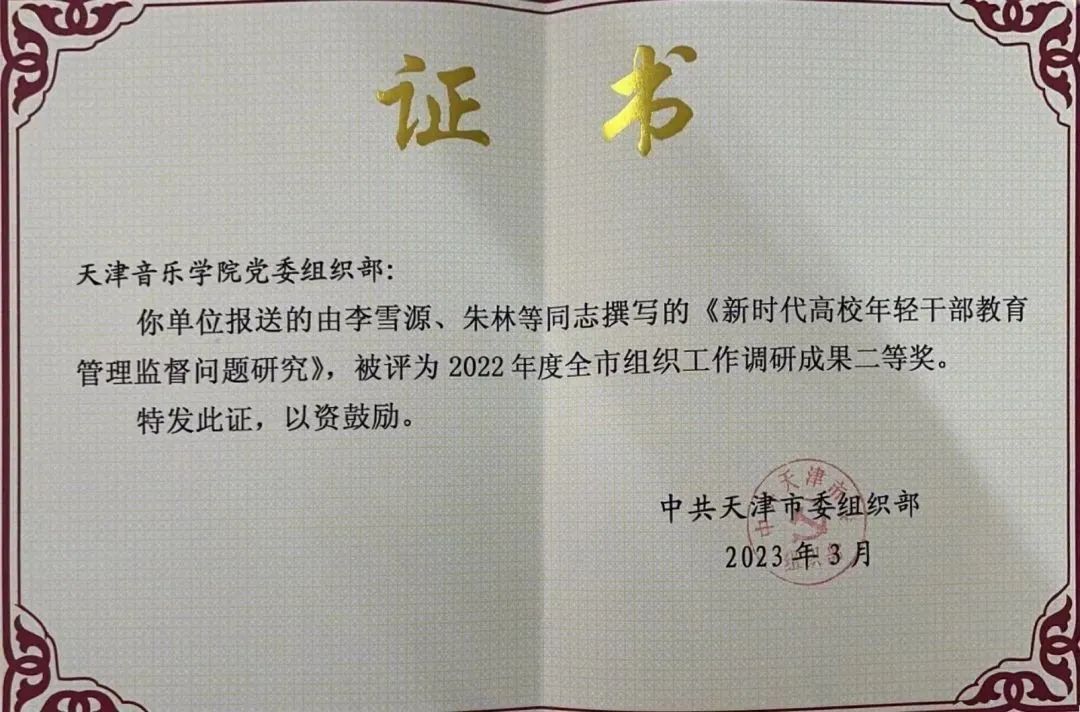 证书
天津音乐学院党委组织部：
你单位报送的由李雪源、朱林等同志撰写的《新时代高校年轻干部教育
管理监督问题研究》，被评为2022年度全市组织工作调研成果二等奖。
特发此证，以资鼓励。
中共天津市委组织部
2023年3月